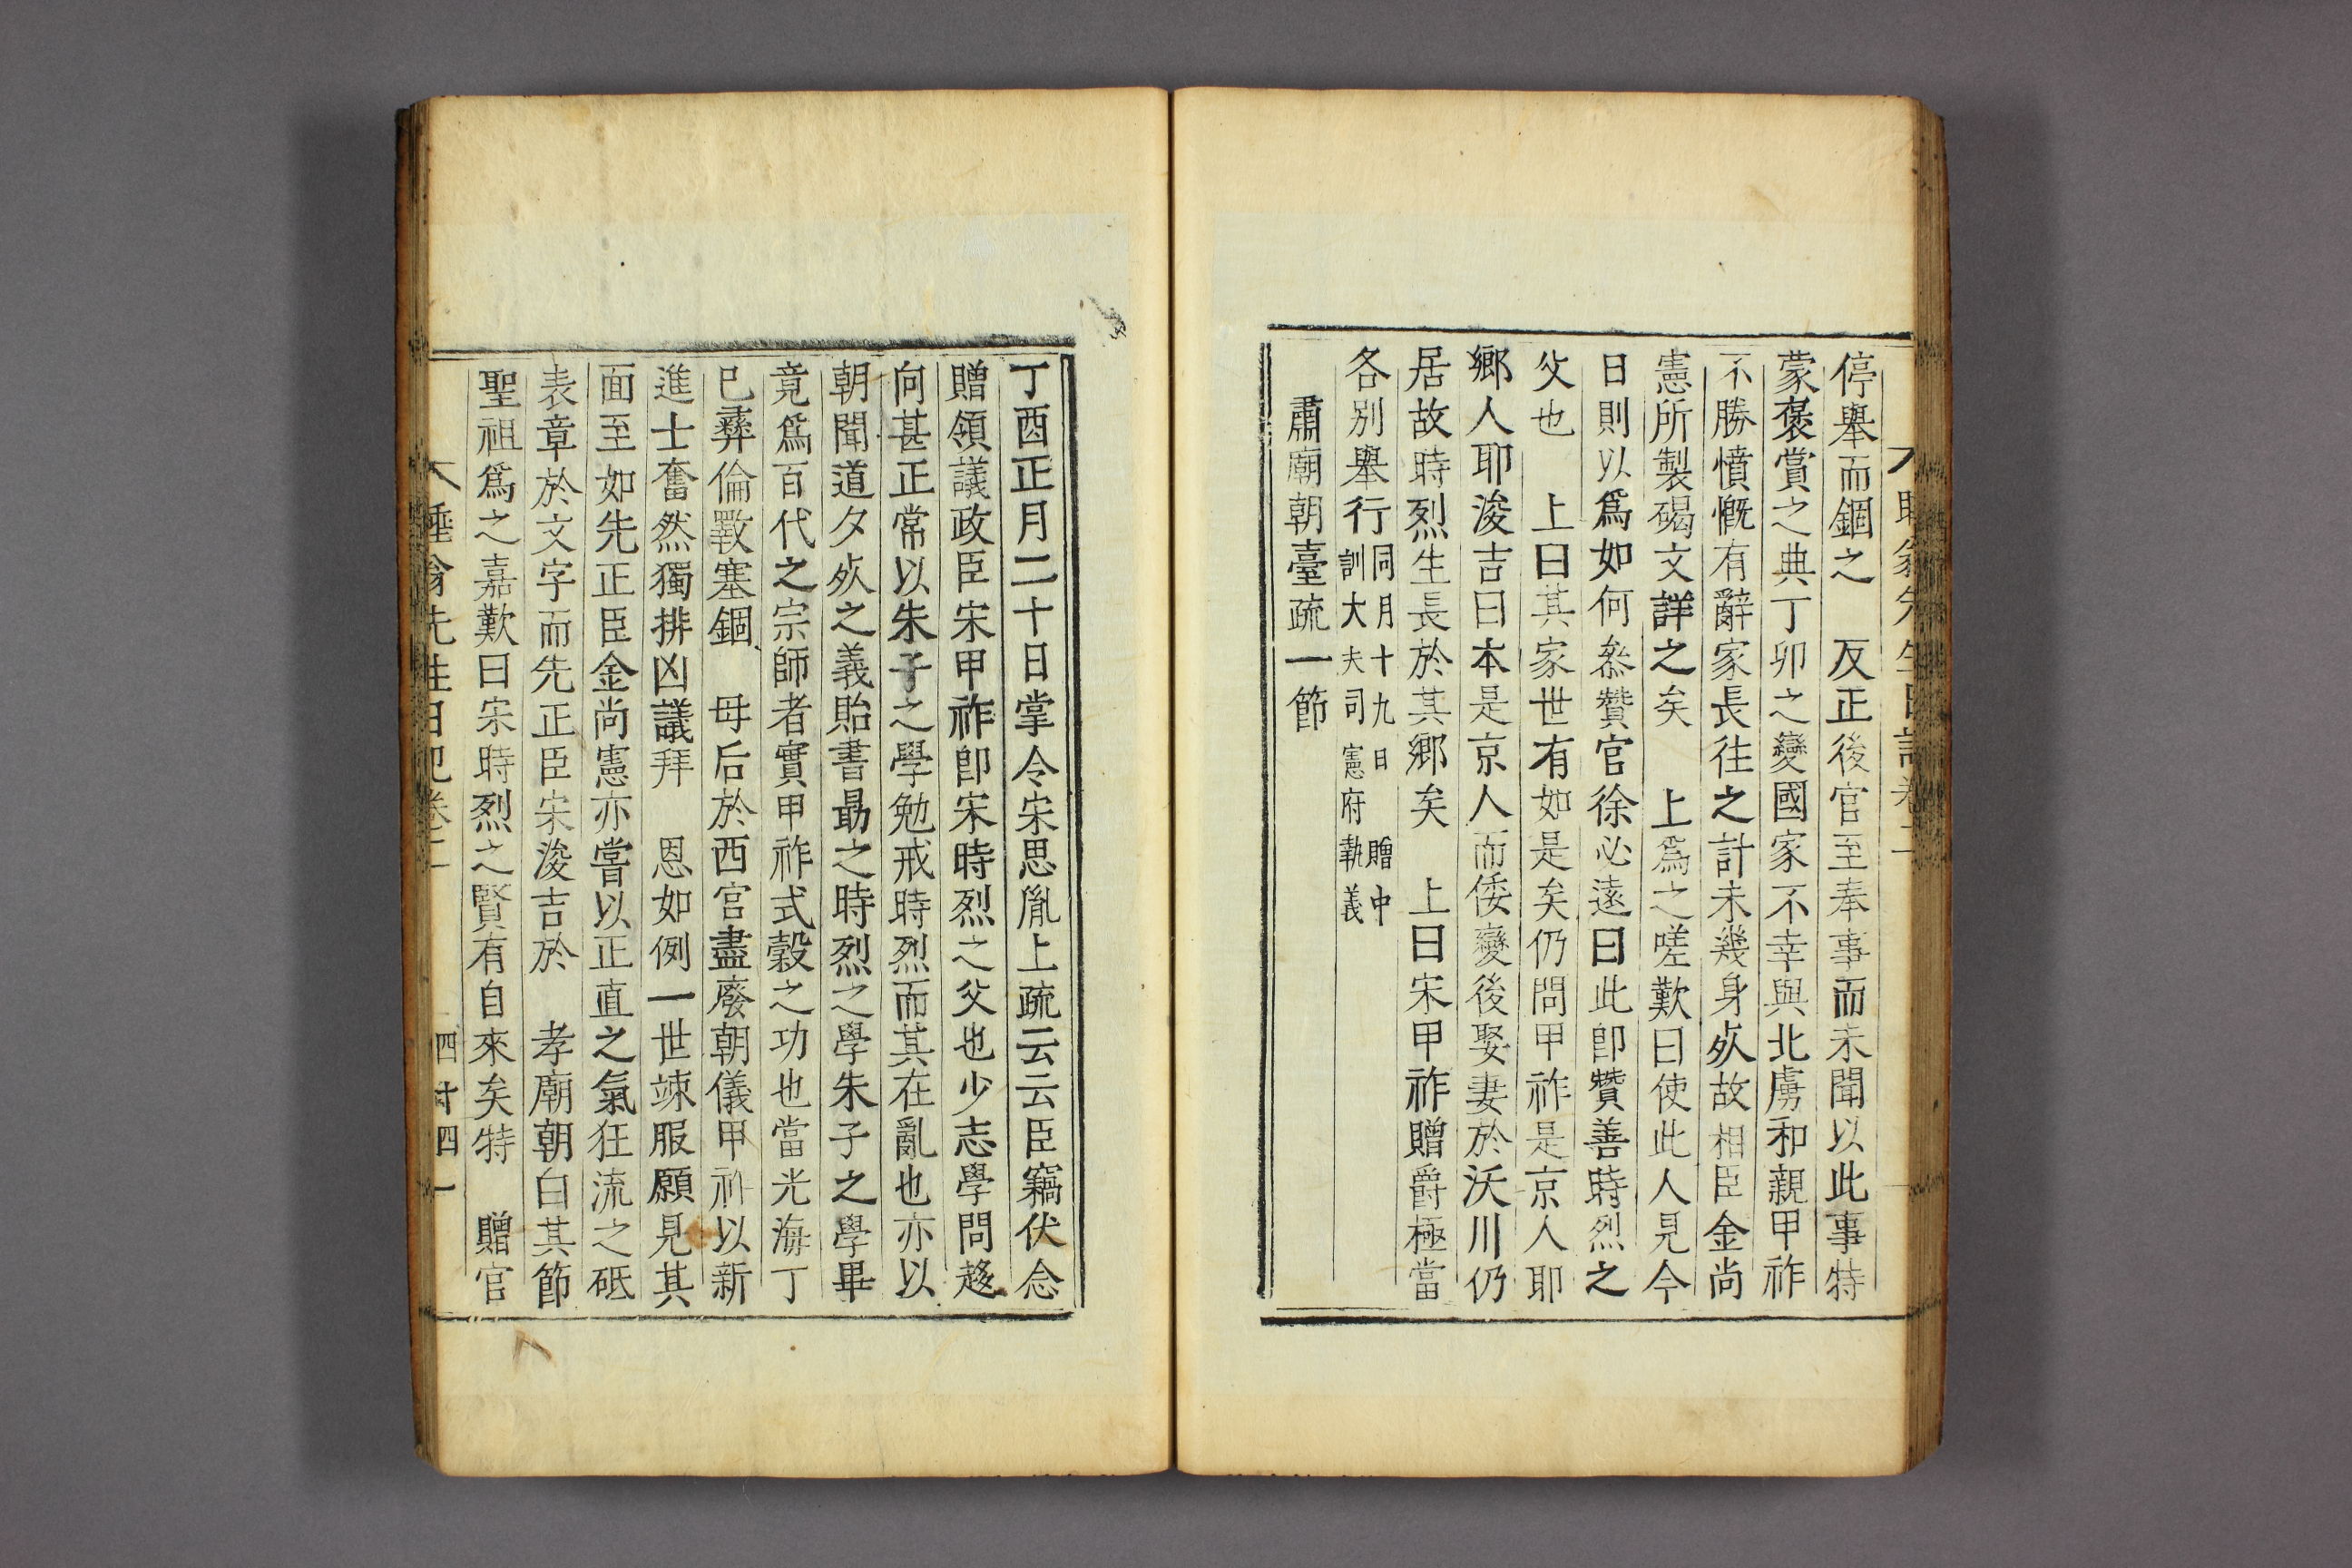 停舉而錮之　反正後官至奉事而未聞以此事特
蒙褒賞之典丁卯之變國家不幸與北虜和親甲祚
不勝憤慨有辭家長往之計未幾身歿故相臣金尚
憲所製碣文詳之矣　上爲之嗟歎曰使此人見今
日則以爲如何叅贊官徐必遠曰此卽贊善時烈之
父也　上曰其家世有如是矣仍問甲祚是京人耶
鄉人耶浚吉曰本是京人而倭變後娶妻於沃川仍
居故時烈生長於其鄉矣　上曰宋甲祚贈爵極當
各別舉行同月十九日　贈中
訓大夫司憲府執義
肅廟朝臺疏一節
丁酉正月二十日掌令宋思胤上疏云云臣竊伏念
贈領議政臣宋甲祚卽宋時烈之父也少志學問趍
向甚正常以朱子之學勉戒時烈而其在亂也亦以
朝聞道夕歿之義貽書勗之時烈之學朱子之學畢
竟爲百代之宗師者實甲祚式穀之功也當光海丁
巳彛倫斁塞錮　母后於西宮盡廢朝儀甲祚以新
進士奮然獨排凶議拜　恩如例一世竦服願見其
面至如先正臣金尚憲亦嘗以正直之氣狂流之砥
表章於文字而先正臣宋浚吉於　孝廟朝白其節
聖祖爲之嘉歎曰宋時烈之賢有自來矣特　贈官
睡翁先生日記卷二
四十四